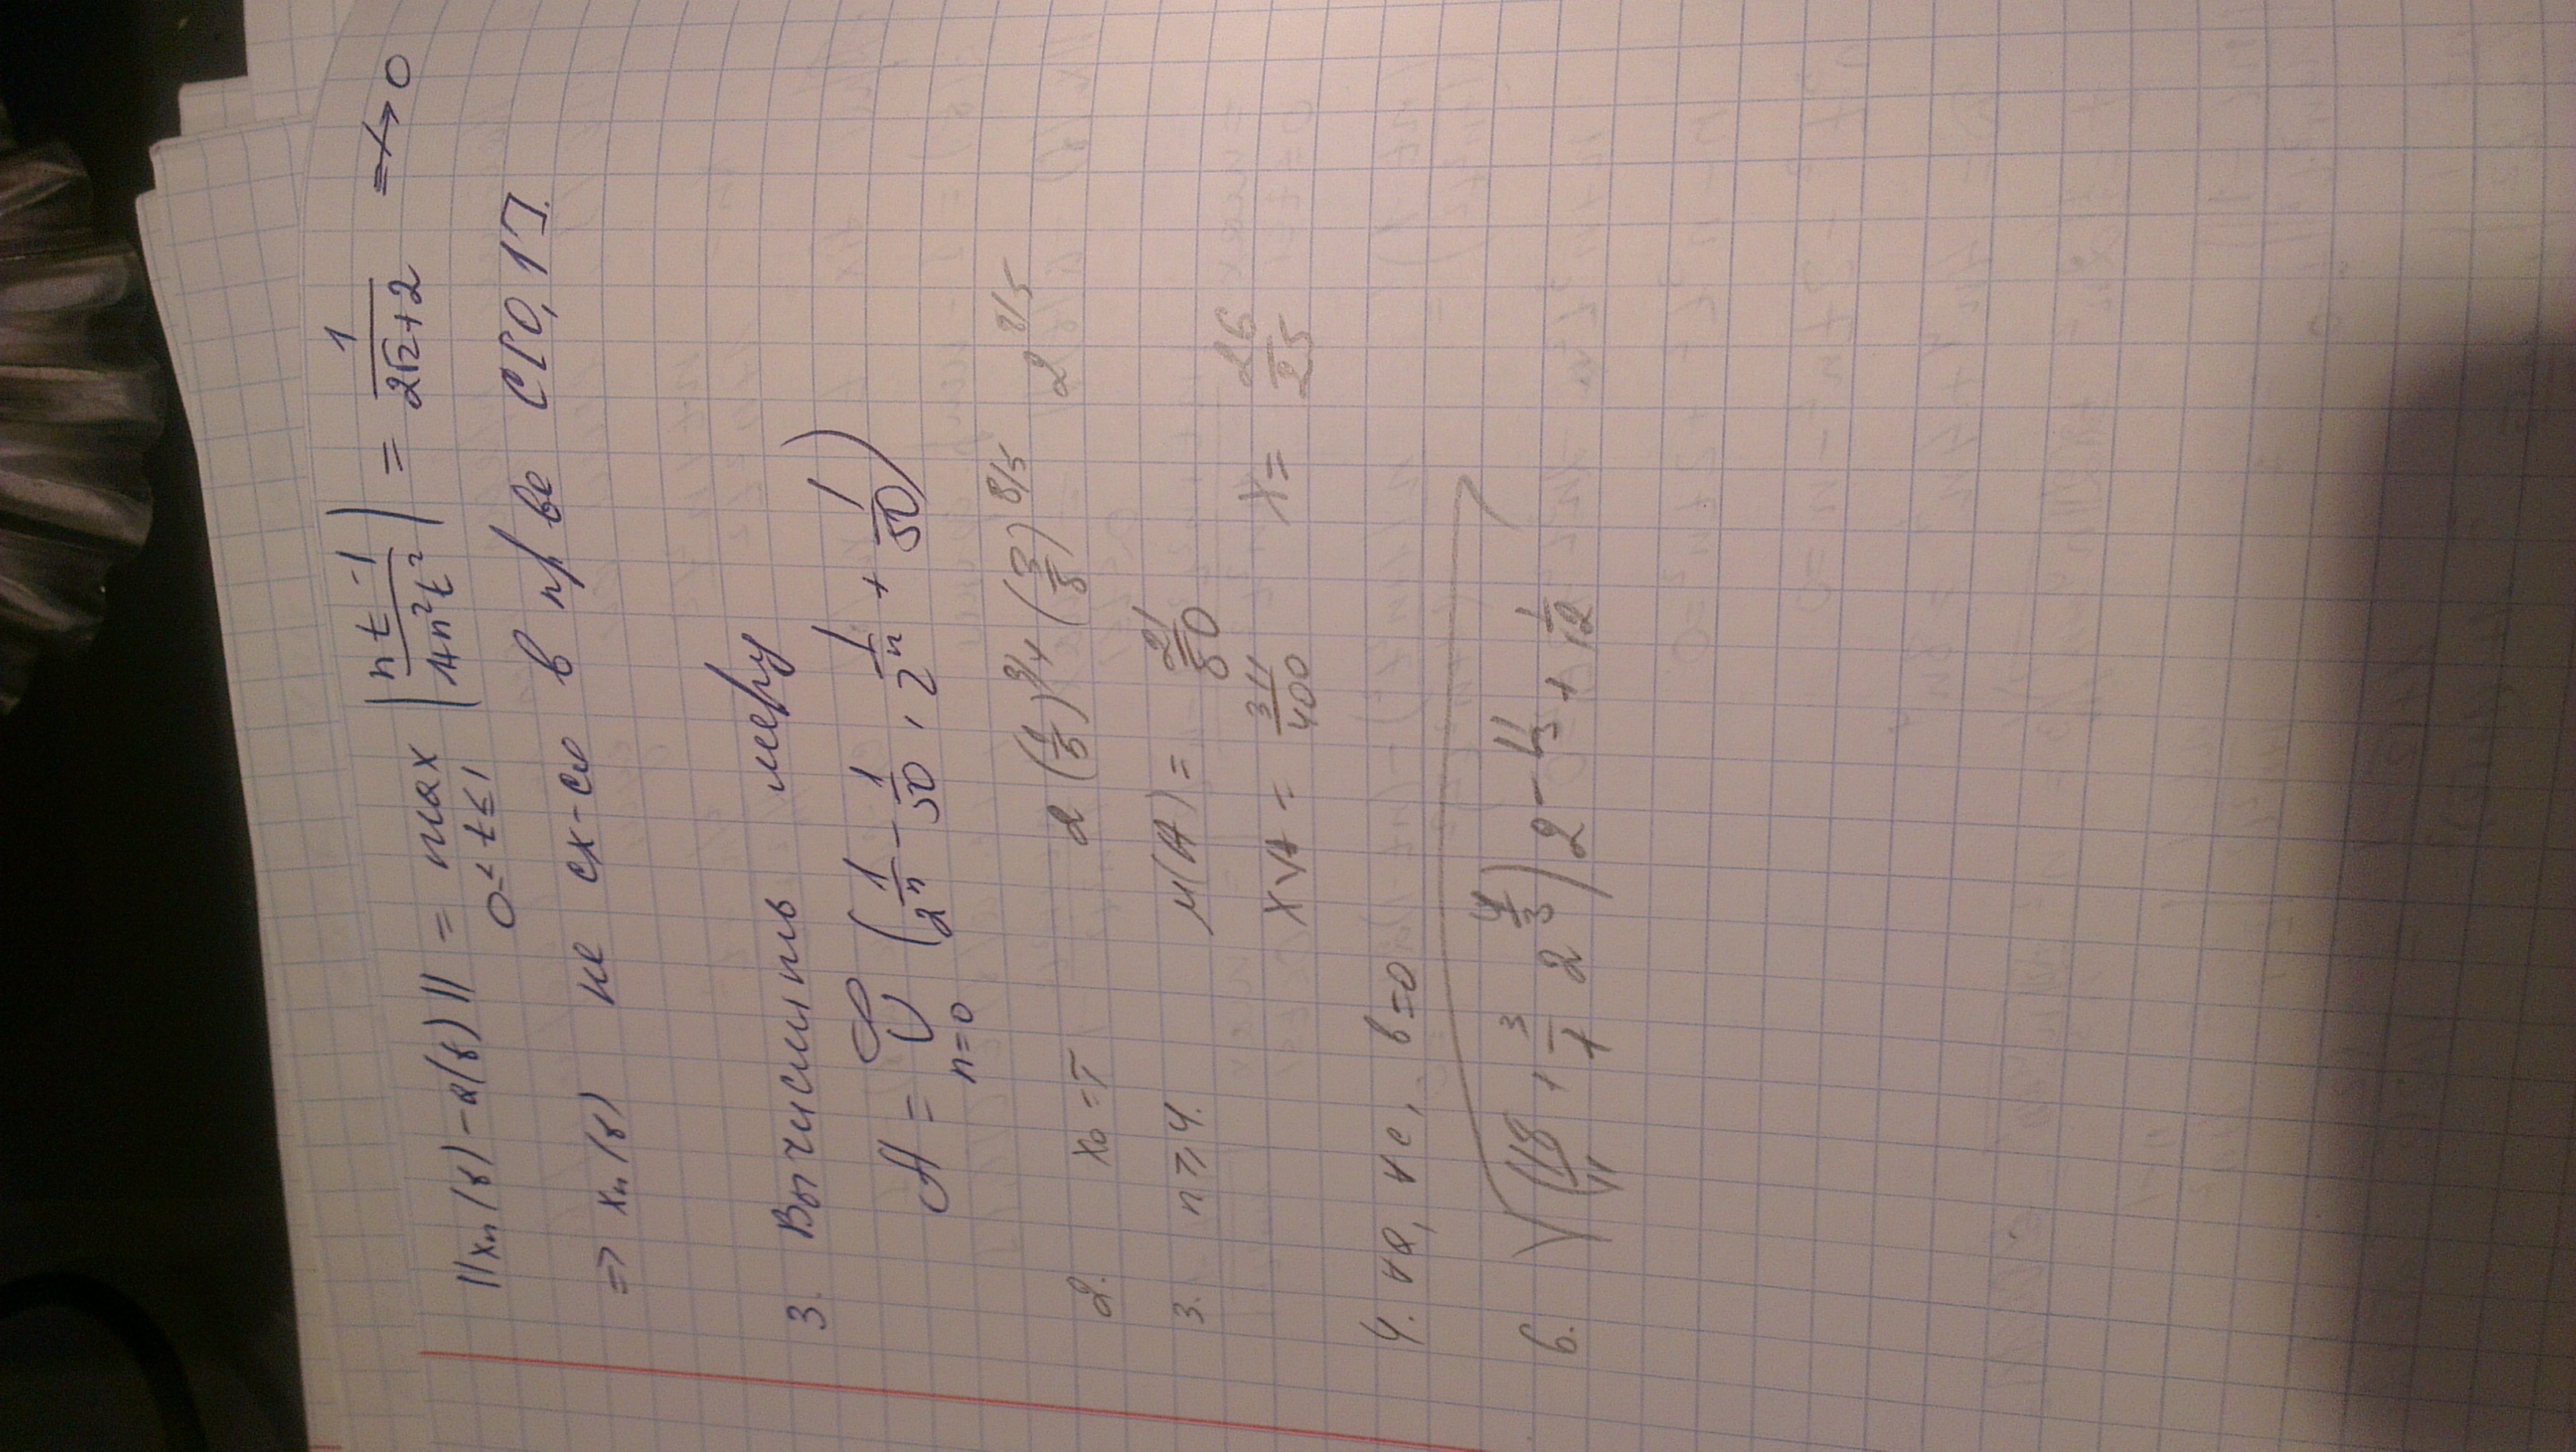 ||xₙ(t) - a(t)|| = max 0≤t≤1 |(nt-1)/(1+n²t²)| = 1/(2√2+2) ↛ 0
=> xₙ(t) не сх-ся в пр ве C[0,1].
3. Вычислить меру
A = ∞∪n=0 (1/2ⁿ - 1/50, 1/2ⁿ + 1/50)
2. x₀=T 2 (4/5)^9/4 (3/8)^8/5 2^8/5
3. n≥4. μ(A) = 21/80
XVA = 311/400 X = 26/25
4. va, vc, b=0
6. 2^4/3) 2 - 11/3 + 1/12